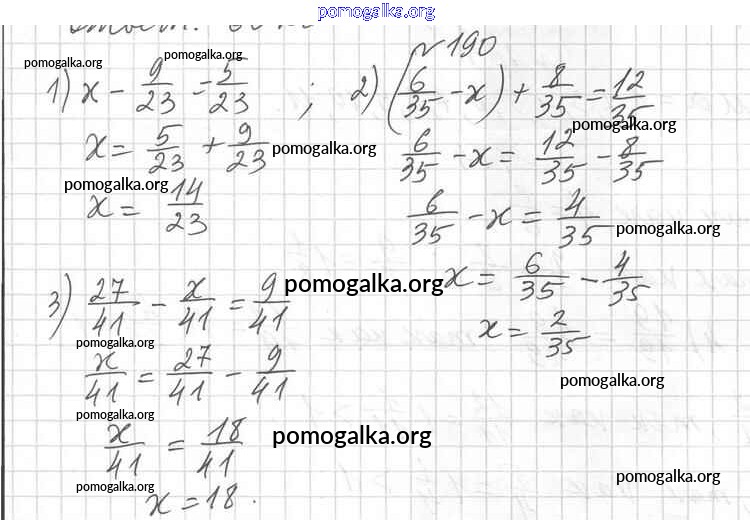 pomogalka.org
№190
pomogalka.org
pomogalka.org
1) x - 9/23 = 5/23 ;
x = 5/23 + 9/23
pomogalka.org
pomogalka.org
x = 14/23
2) (6/35 - x) + 8/35 = 12/35
pomogalka.org
6/35 - x = 12/35 - 8/35
6/35 - x = 4/35
pomogalka.org
x = 6/35 - 4/35
x = 2/35
pomogalka.org
3) 27/41 - x/41 = 9/41
pomogalka.org
pomogalka.org
x/41 = 27/41 - 9/41
pomogalka.org
x/41 = 18/41
pomogalka.org
pomogalka.org
pomogalka.org
x = 18.